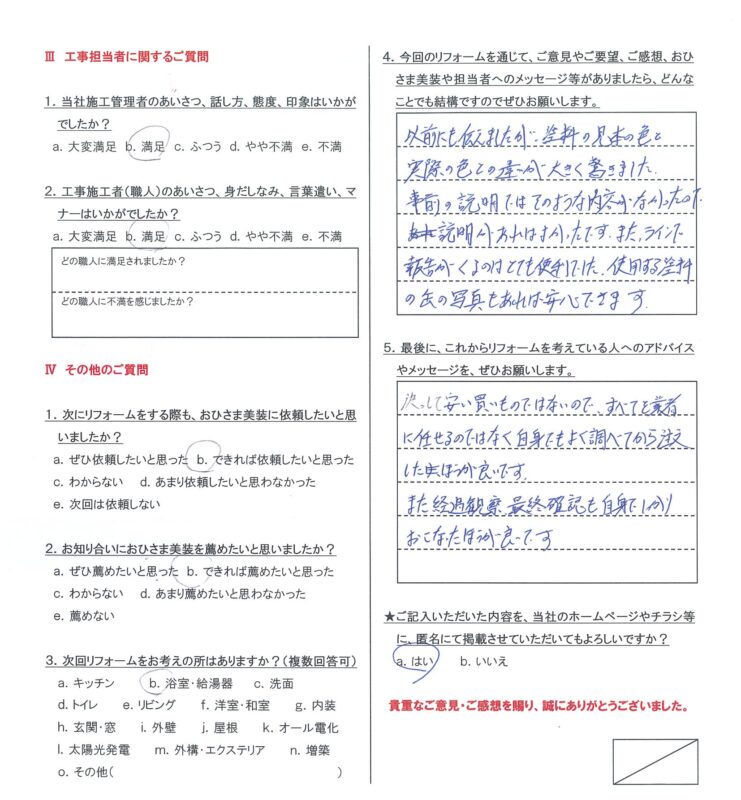 Ⅲ 工事担当者に関するご質問
1. 当社施工管理者のあいさつ、話し方、態度、印象はいかが
でしたか？
a. 大変満足 b. 満足 c. ふつう d. やや不満 e. 不満
2. 工事施工者（職人）のあいさつ、身だしなみ、言葉遣い、マ
ナーはいかがでしたか？
a. 大変満足 b. 満足 c. ふつう d. やや不満 e. 不満
どの職人に満足されましたか？
どの職人に不満を感じましたか？
Ⅳ その他のご質問
1. 次にリフォームをする際も、おひさま美装に依頼したいと思
いましたか？
a. ぜひ依頼したいと思った b. できれば依頼したいと思った
c. わからない d. あまり依頼したいと思わなかった
e. 次回は依頼しない
2. お知り合いにおひさま美装を薦めたいと思いましたか？
a. ぜひ薦めたいと思った b. できれば薦めたいと思った
c. わからない d. あまり薦めたいと思わなかった
e. 薦めない
3. 次回リフォームをお考えの所はありますか？（複数回答可）
a. キッチン b. 浴室・給湯器 c. 洗面
d. トイレ e. リビング f. 洋室・和室 g. 内装
h. 玄関・窓 i. 外壁 j. 屋根 k. オール電化
l. 太陽光発電 m. 外構・エクステリア n. 増築
o. その他（ ）
4. 今回のリフォームを通じて、ご意見やご要望、ご感想、おひ
さま美装や担当者へのメッセージ等がありましたら、どんな
ことでも結構ですのでぜひお願いします。
以前にも伝えましたが、塗料の見本の色と
実際の色との違いが大きく驚きました。
事前の説明ではそのような内容がなかったので
説明があればよかったです。また、ラインで
報告がくるのはとても便利でした。使用する塗料
の缶の写真もあれば安心できます。
5. 最後に、これからリフォームを考えている人へのアドバイス
やメッセージを、ぜひお願いします。
決っして安い買いものではないので、すべてを業者
に任せるのではなく自身でもよく調べてから注文
したほうが良いです。
また経過観察、最終確認も自身でしっかり
おこなったほうが良いです
★ご記入いただいた内容を、当社のホームページやチラシ等
に、匿名にて掲載させていただいてもよろしいですか？
a. はい b. いいえ
貴重なご意見・ご感想を賜り、誠にありがとうございました。